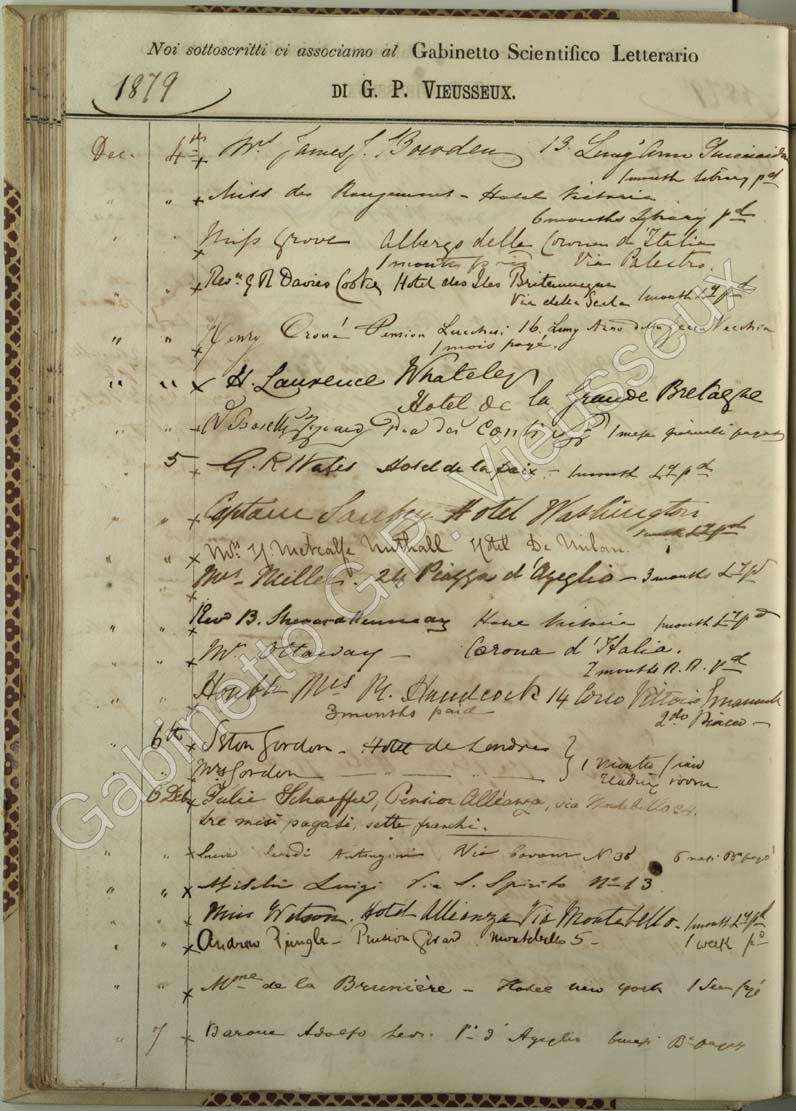 Noi sottoscritti ci associamo al Gabinetto Scientifico Letterario
1879
DI G. P. VIEUSSEUX.
Dec. 4th x Mrs James J. Bowden 13 Lung'Arno
1 month library pd
" " x Miss de Rougemont - Hotel Victoria
6 months Library pd
" " x Miss Grove Albergo della Corona d'Italia
1 month paid Via Palestro.
" " x Revd G R Davies Cooke Hotel des Iles Britannique
Via della Scala 1 month pd
" " x Henry Pension Lucchesi 16 Lung Arno della Zecca Vecchia
1 mois payé.
" " x H. Laurence Whateley
Hotel de la Grande Bretagne
" " x 1 mese
5 x G. R. Wales Hotel de la Paix - 1 month pd
" x Captain Hotel Washington
1 month pd
" x Mrs H Metcalfe Nuthall Hotel De Milan.
x Mrs Miller. 24 Piazza d'Azeglio - 3 months pd
" " x Revd B. Hotel Victoria 1 month pd
" " x Mr Ottaway - Corona d'Italia.
2 months R. R. pd
" " x Honble Mrs R. Handcock 14 Corso Vittorio Emanuele
3 months paid 2do Piano -
6th x Gordon - Hotel de Londres
" x Mrs Gordon - - - } 1 month paid
reading room
6 Debr x Julie Schaeffer, Pension Alleanza, via Montebello 34.
tre mesi pagati, sette franchi.
" " x Via Cavour N 36 6 mesi
" " x Luigi Via S. Spirito No 13
" " x Miss Watson. Hotel Alleanza Via Montebello - 1 month pd
" " x Andrew Pringle - Pension Girard. Montebello 5 - 1 week pd
" " x Mme de la Brunière - Hotel new york 1 payé
" 7 x Barone Adolfo Levi P. d'Azeglio 6 mesi
Gabinetto G.P. Vieusseux